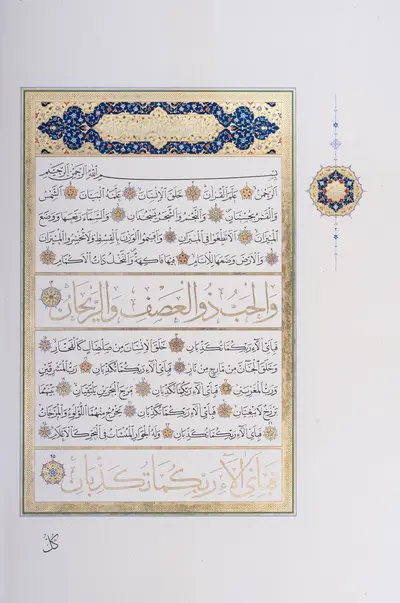 بِسْمِ اللَّهِ الرَّحْمَٰنِ الرَّحِيمِ
الرَّحْمَٰنُ عَلَّمَ الْقُرْآنَ خَلَقَ الْإِنْسَانَ عَلَّمَهُ الْبَيَانَ الشَّمْسُ
وَالْقَمَرُ بِحُسْبَانٍ وَالنَّجْمُ وَالشَّجَرُ يَسْجُدَانِ وَالسَّمَاءَ رَفَعَهَا وَوَضَعَ
الْمِيزَانَ أَلَّا تَطْغَوْا فِي الْمِيزَانِ وَأَقِيمُوا الْوَزْنَ بِالْقِسْطِ وَلَا تُخْسِرُوا الْمِيزَانَ
وَالْأَرْضَ وَضَعَهَا لِلْأَنَامِ فِيهَا فَاكِهَةٌ وَالنَّخْلُ ذَاتُ الْأَكْمَامِ
وَالْحَبُّ ذُو الْعَصْفِ وَالرَّيْحَانُ
فَبِأَيِّ آلَاءِ رَبِّكُمَا تُكَذِّبَانِ خَلَقَ الْإِنْسَانَ مِنْ صَلْصَالٍ كَالْفَخَّارِ
وَخَلَقَ الْجَانَّ مِنْ مَارِجٍ مِنْ نَارٍ فَبِأَيِّ آلَاءِ رَبِّكُمَا تُكَذِّبَانِ رَبُّ الْمَشْرِقَيْنِ
وَرَبُّ الْمَغْرِبَيْنِ فَبِأَيِّ آلَاءِ رَبِّكُمَا تُكَذِّبَانِ مَرَجَ الْبَحْرَيْنِ يَلْتَقِيَانِ بَيْنَهُمَا
بَرْزَخٌ لَا يَبْغِيَانِ فَبِأَيِّ آلَاءِ رَبِّكُمَا تُكَذِّبَانِ يَخْرُجُ مِنْهُمَا اللُّؤْلُؤُ وَالْمَرْجَانُ
فَبِأَيِّ آلَاءِ رَبِّكُمَا تُكَذِّبَانِ وَلَهُ الْجَوَارِ الْمُنْشَآتُ فِي الْبَحْرِ كَالْأَعْلَامِ
فَبِأَيِّ آلَاءِ رَبِّكُمَا تُكَذِّبَانِ
كُلُّ